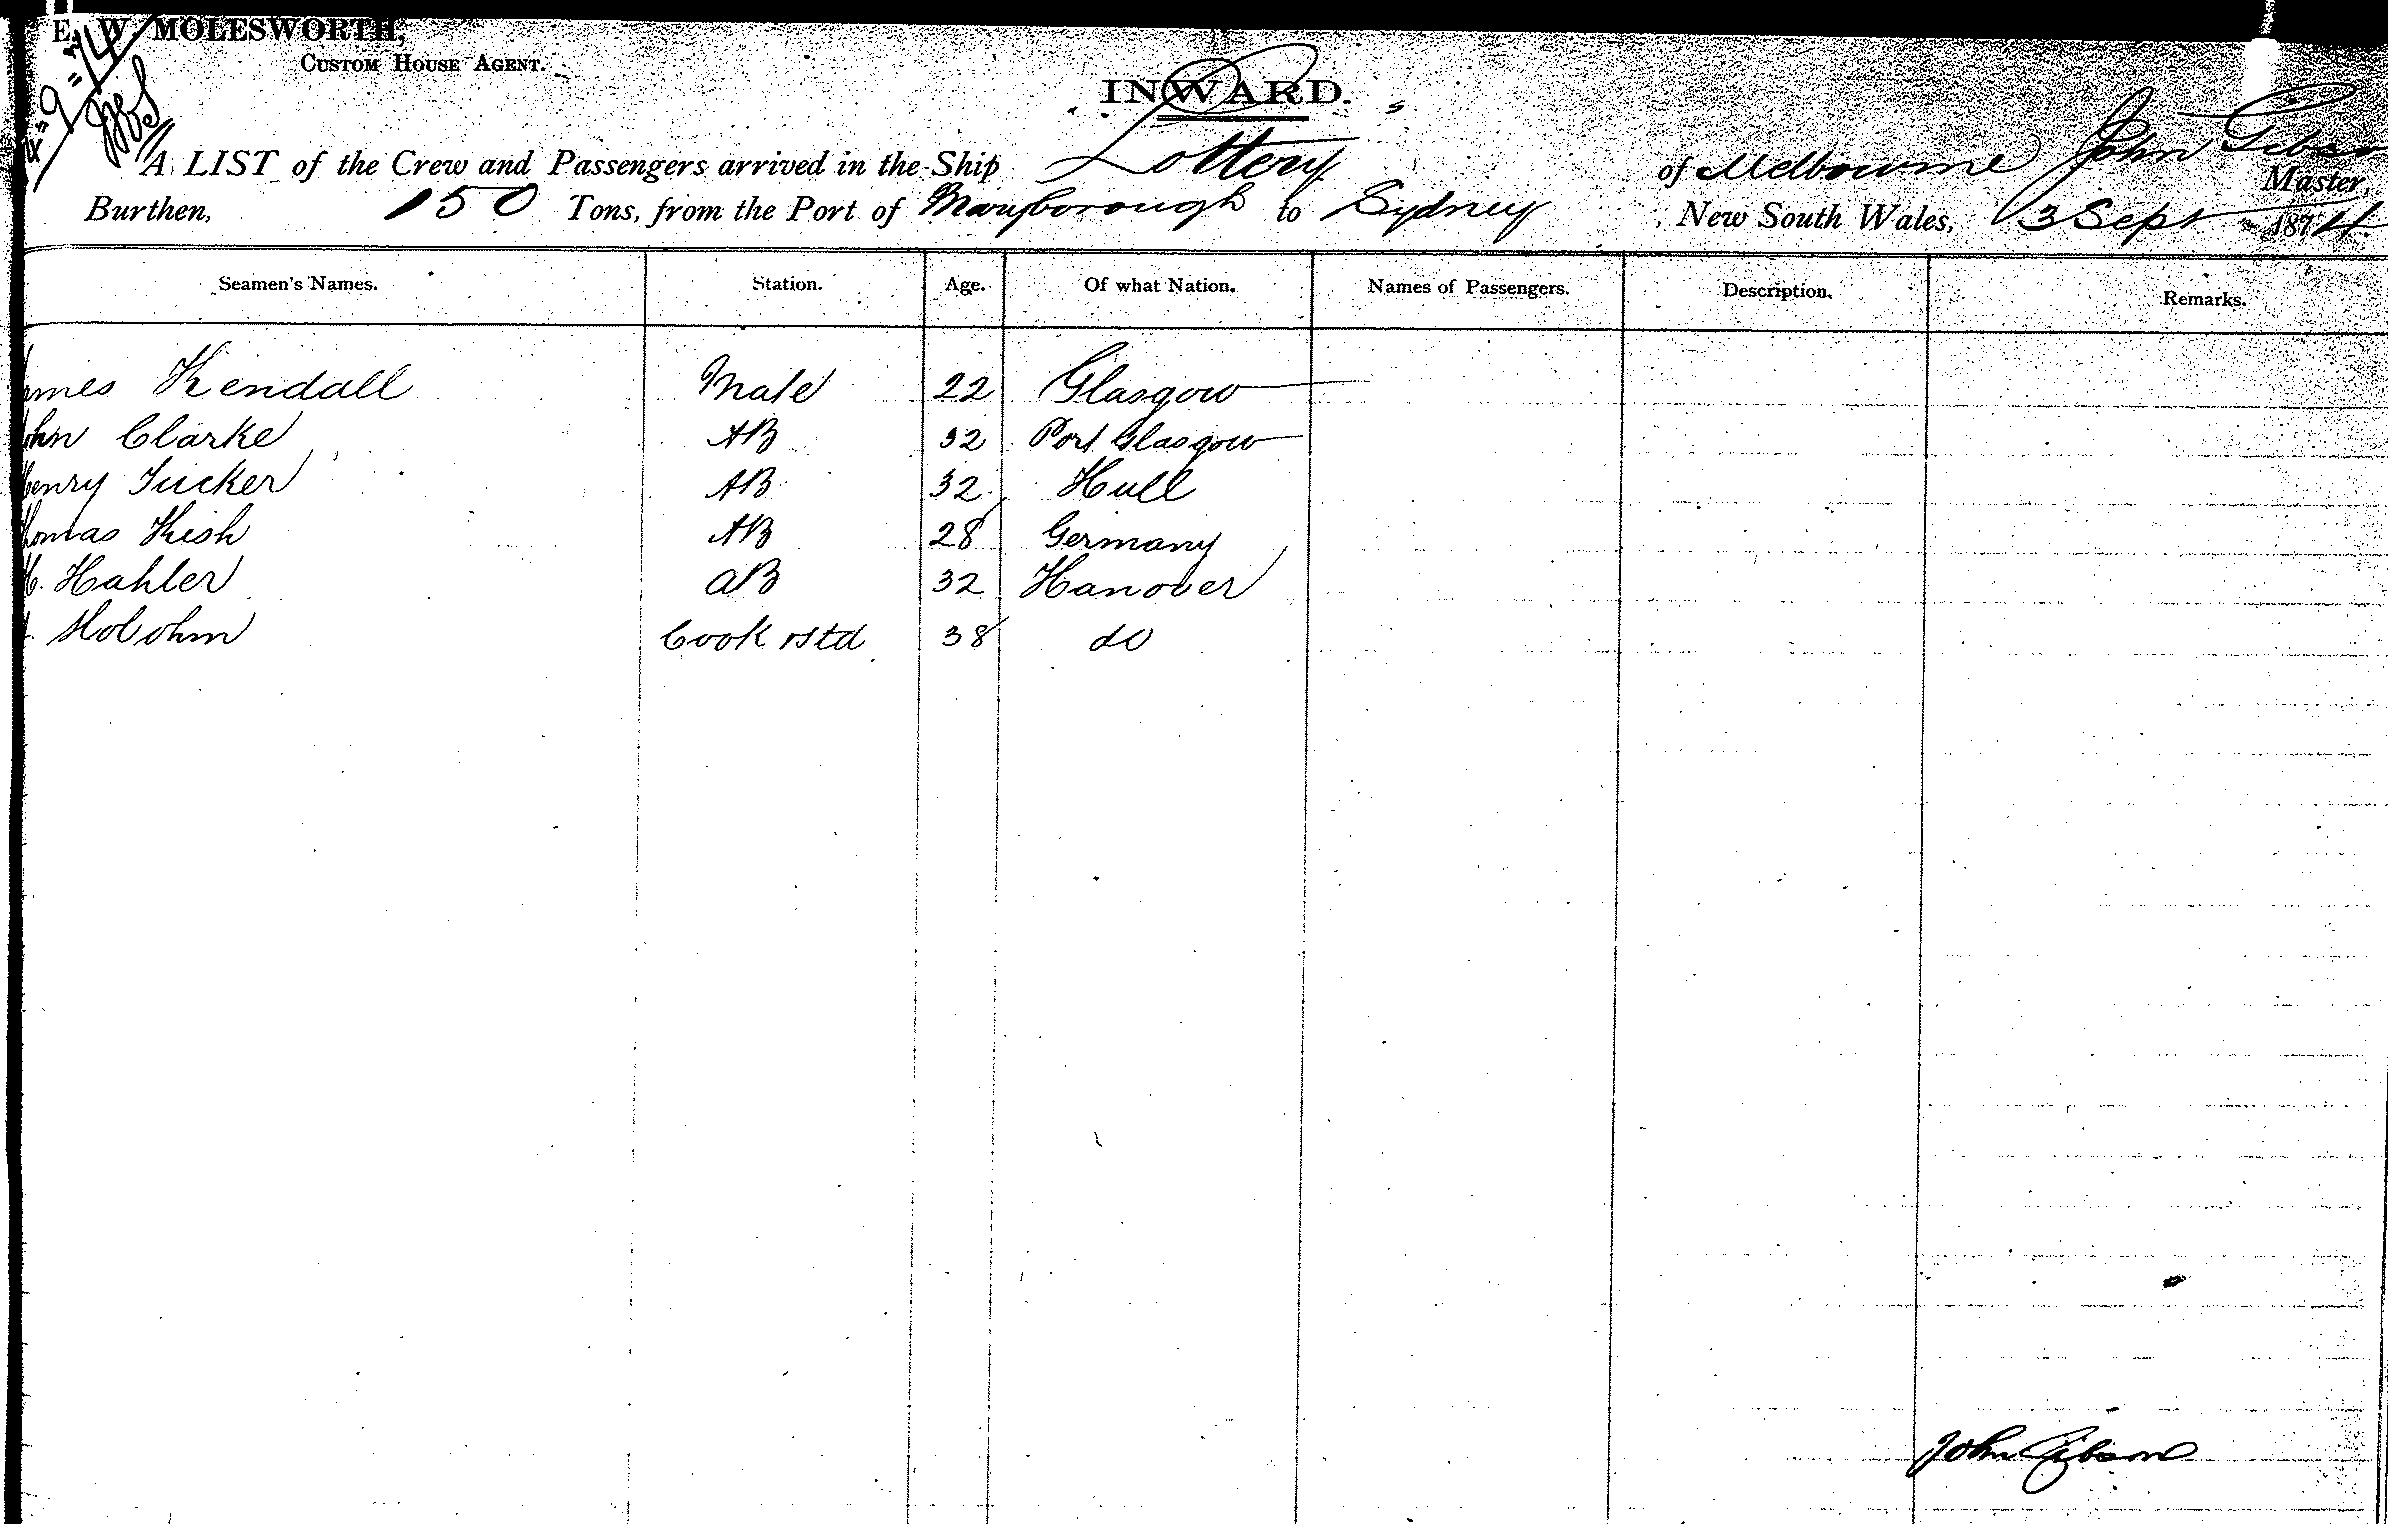 E. W. MOLESWORTH,
CUSTOM HOUSE AGENT.
4=9=74
INWARD.
A LIST of the Crew and Passengers arrived in the Ship "Lottery" of Melbourne John Gibson Master,
Burthen, 150 Tons, from the Port of Maryborough to Sydney New South Wales, 3 Sept 1874
Seamen's Names. Station. Age. Of what Nation. Names of Passengers. Description. Remarks.
ames Kendall Mate 22 Glasgow
ohn Clarke AB 32 Port Glasgow
Henry Tucker AB 32 Hull
homas Kish AB 28 Germany
H. Hahler AB 32 Hanover
Cook & Std 38 do
John Gibson